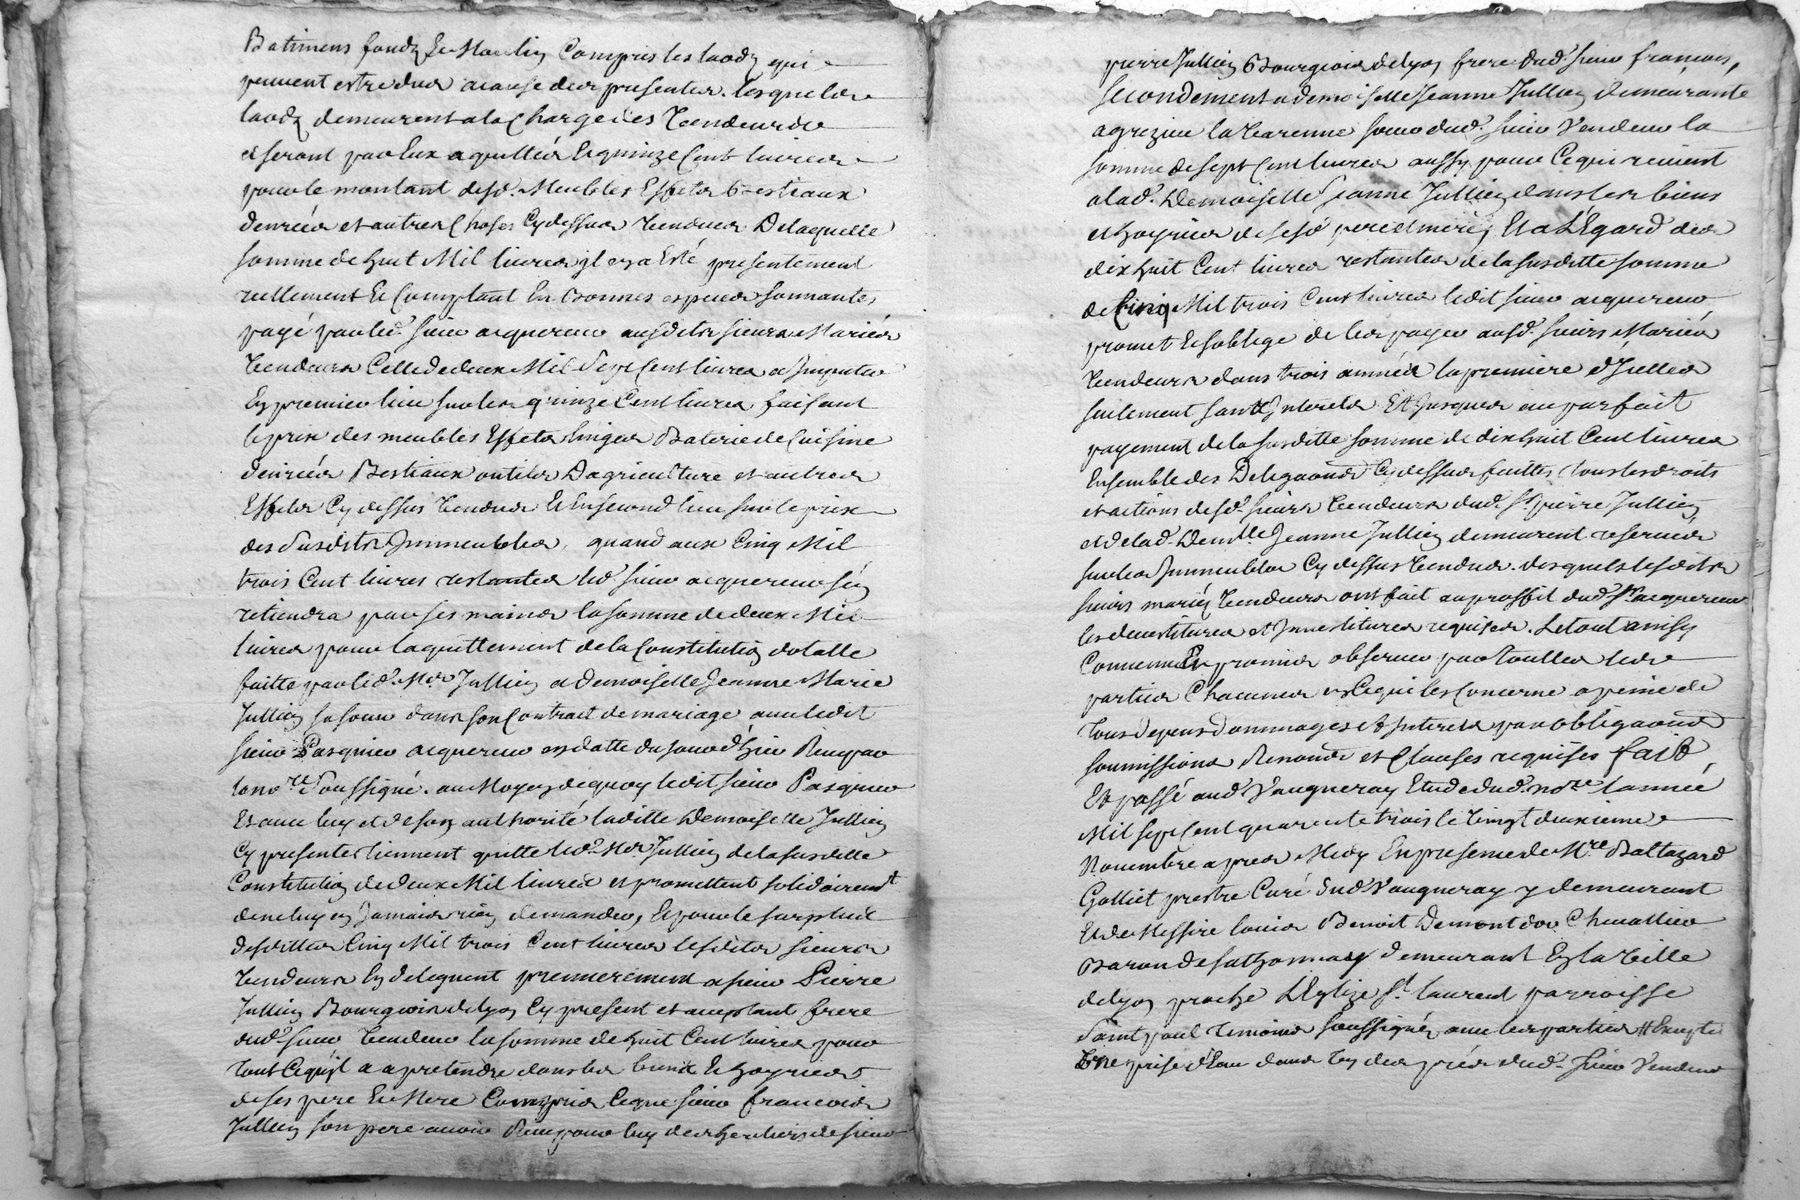 Batimens fondz Et Moulin Compris les laodz qui
peuvent estre dus acause des presentes. lesquels
laodz demeurent ala Charge des Vendeurs
et seront par Eux aquittés Et quinze Cent livres
pour le montant desd. Meubles Effets Bestiaux
denrées et autres Choses Cy dessus Vendues Delaquelle
somme de huit Mil livres jl en a Esté presentement
reellement Et Comptant En bonnes especes sonnantes
payé par led. sieur acquereur ausdits sieurs Mariés
Vendeurs Celle de deux Mil Sept Cent livres a Jmputer
En premier lieu sur les quinze Cent livres faisant
le prix des meubles Effets linges Baterie de Cuisine
denrées Bestiaux outils Dagriculture et autres
Effets Cy dessus Vendus Et En second lieu sur le prix
des Susdits Jmmeubles, quand aux Cinq Mil
trois Cent livres restantes led. sieur acquereur En
retiendra par ses mains la somme de deux Mil
livres pour laquittement de la Constitution dotalle
faitte par led. Sr. Jullien a Demoiselle Jeanne Marie
Jullien sa soeur dans son Contrat de mariage avec ledit
sieur Pasquier acquereur en datte du jour d'hier Reçu par
le no.re Soussigné. au Moyen dequoy ledit sieur Pasquier
Et avec luy et de son authorité laditte Demoiselle Jullien
Cy presente tiennent quitte led. Sr. Jullien de la susditte
Constitution de deux Mil livres et promettent solidairemt
de ne luy en Jamais rien demander, Et pour le surplus
desdittes Cinq Mil trois Cent livres lesdits sieurs
Vendeurs En deleguent premierement a sieur Pierre
Jullien Bourgeois de Lyon Cy present et acceptant frere
dud. sieur Vendeur la somme de huit Cent livres pour
tout Ce qu'jl a a pretendre dans les biens Et hoyries
de ses pere Et Mere Compris Ce que sieur francois
Jullien son pere avoit Reçu pour luy des heritiers de sieur
pierre Jullien Bourgeois de Lyon frere dud. sieur francois,
secondement a demoiselle Jeanne Jullien demeurante
a grezieu la Varenne soeur dud. sieur Vendeur la
somme de sept Cent livres aussy pour Ce qui revient
a lad. Demoiselle Jeanne Jullien dans les biens
et hoyries de sesd. pere et mere; Et a L'Egard des
dix huit Cent livres restantes de la susditte somme
de Cinq Mil trois Cent livres ledit sieur acquereur
promet Et soblige de les payer ausd. sieurs Mariés
Vendeurs dans trois années la premiere d'Jcelles
seulement sans Jnterets Et Jusques au parfait
payement de la susditte somme de dix huit Cent livres
Ensemble des Delegaons Cy dessus faittes, tous les droits
et actions desd. sieurs Vendeurs dud. Sr. pierre Jullien
et de lad. Demlle Jeanne Jullien demeurent reservés
sur les Jmmeubles Cy dessus Vendus. desquels lesdits
sieurs mariés Vendeurs ont fait au proffit dud. Sr. acquereur
les devestitures et Jnvestitures requises. Le tout ainsy
Convenu Et promis observer par touttes lesd.
parties Chacunes en Ce qui les Concerne a peine de
tous depens dommages Et Jnterets par obligaons
soumissions Renonde et Clauses requises fait
Et passé aud. Vaugneray Etude dud. no.re lannée
Mil sept cent quarente trois le Vingt deuxieme
Novembre apres Midy En presence de Mre Baltazard
Galliet prestre Curé dud. Vaugneray y demeurant
Et de Messire louis Benoit Demontdor Chevallier
Baron de sathonnay demeurant En la Ville
de Lyon proche L'Eglize St. laurent parroisse
Saint paul temoins soussignés avec les parties # Excepté
Une prise d'Eau dans Un des prés dud. sieur Vendeur